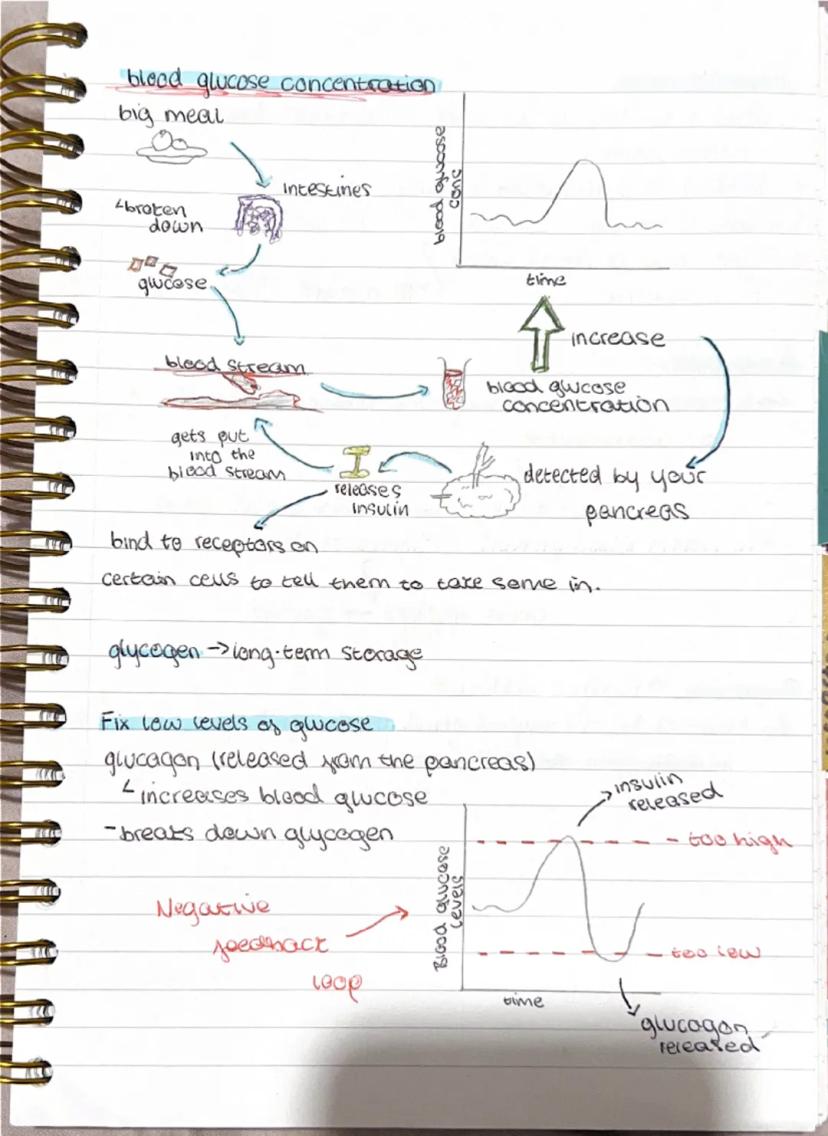 blood glucose concentration
big meal
intestines
↳broken
down
glucose
blood glucose
conc
time
increase
blood stream
blood glucose
concentration
gets put
into the
blood stream
releases
insulin
detected by your
pancreas
bind to receptors on
certain cells to tell them to take some in.
glycogen → long-term storage
Fix low levels of glucose
glucagon (released from the pancreas)
↳ increases blood glucose
- breaks down glycogen
insulin
released
too high
Blood glucose
levels
Negative
feedback
loop
too low
time
glucagon
released